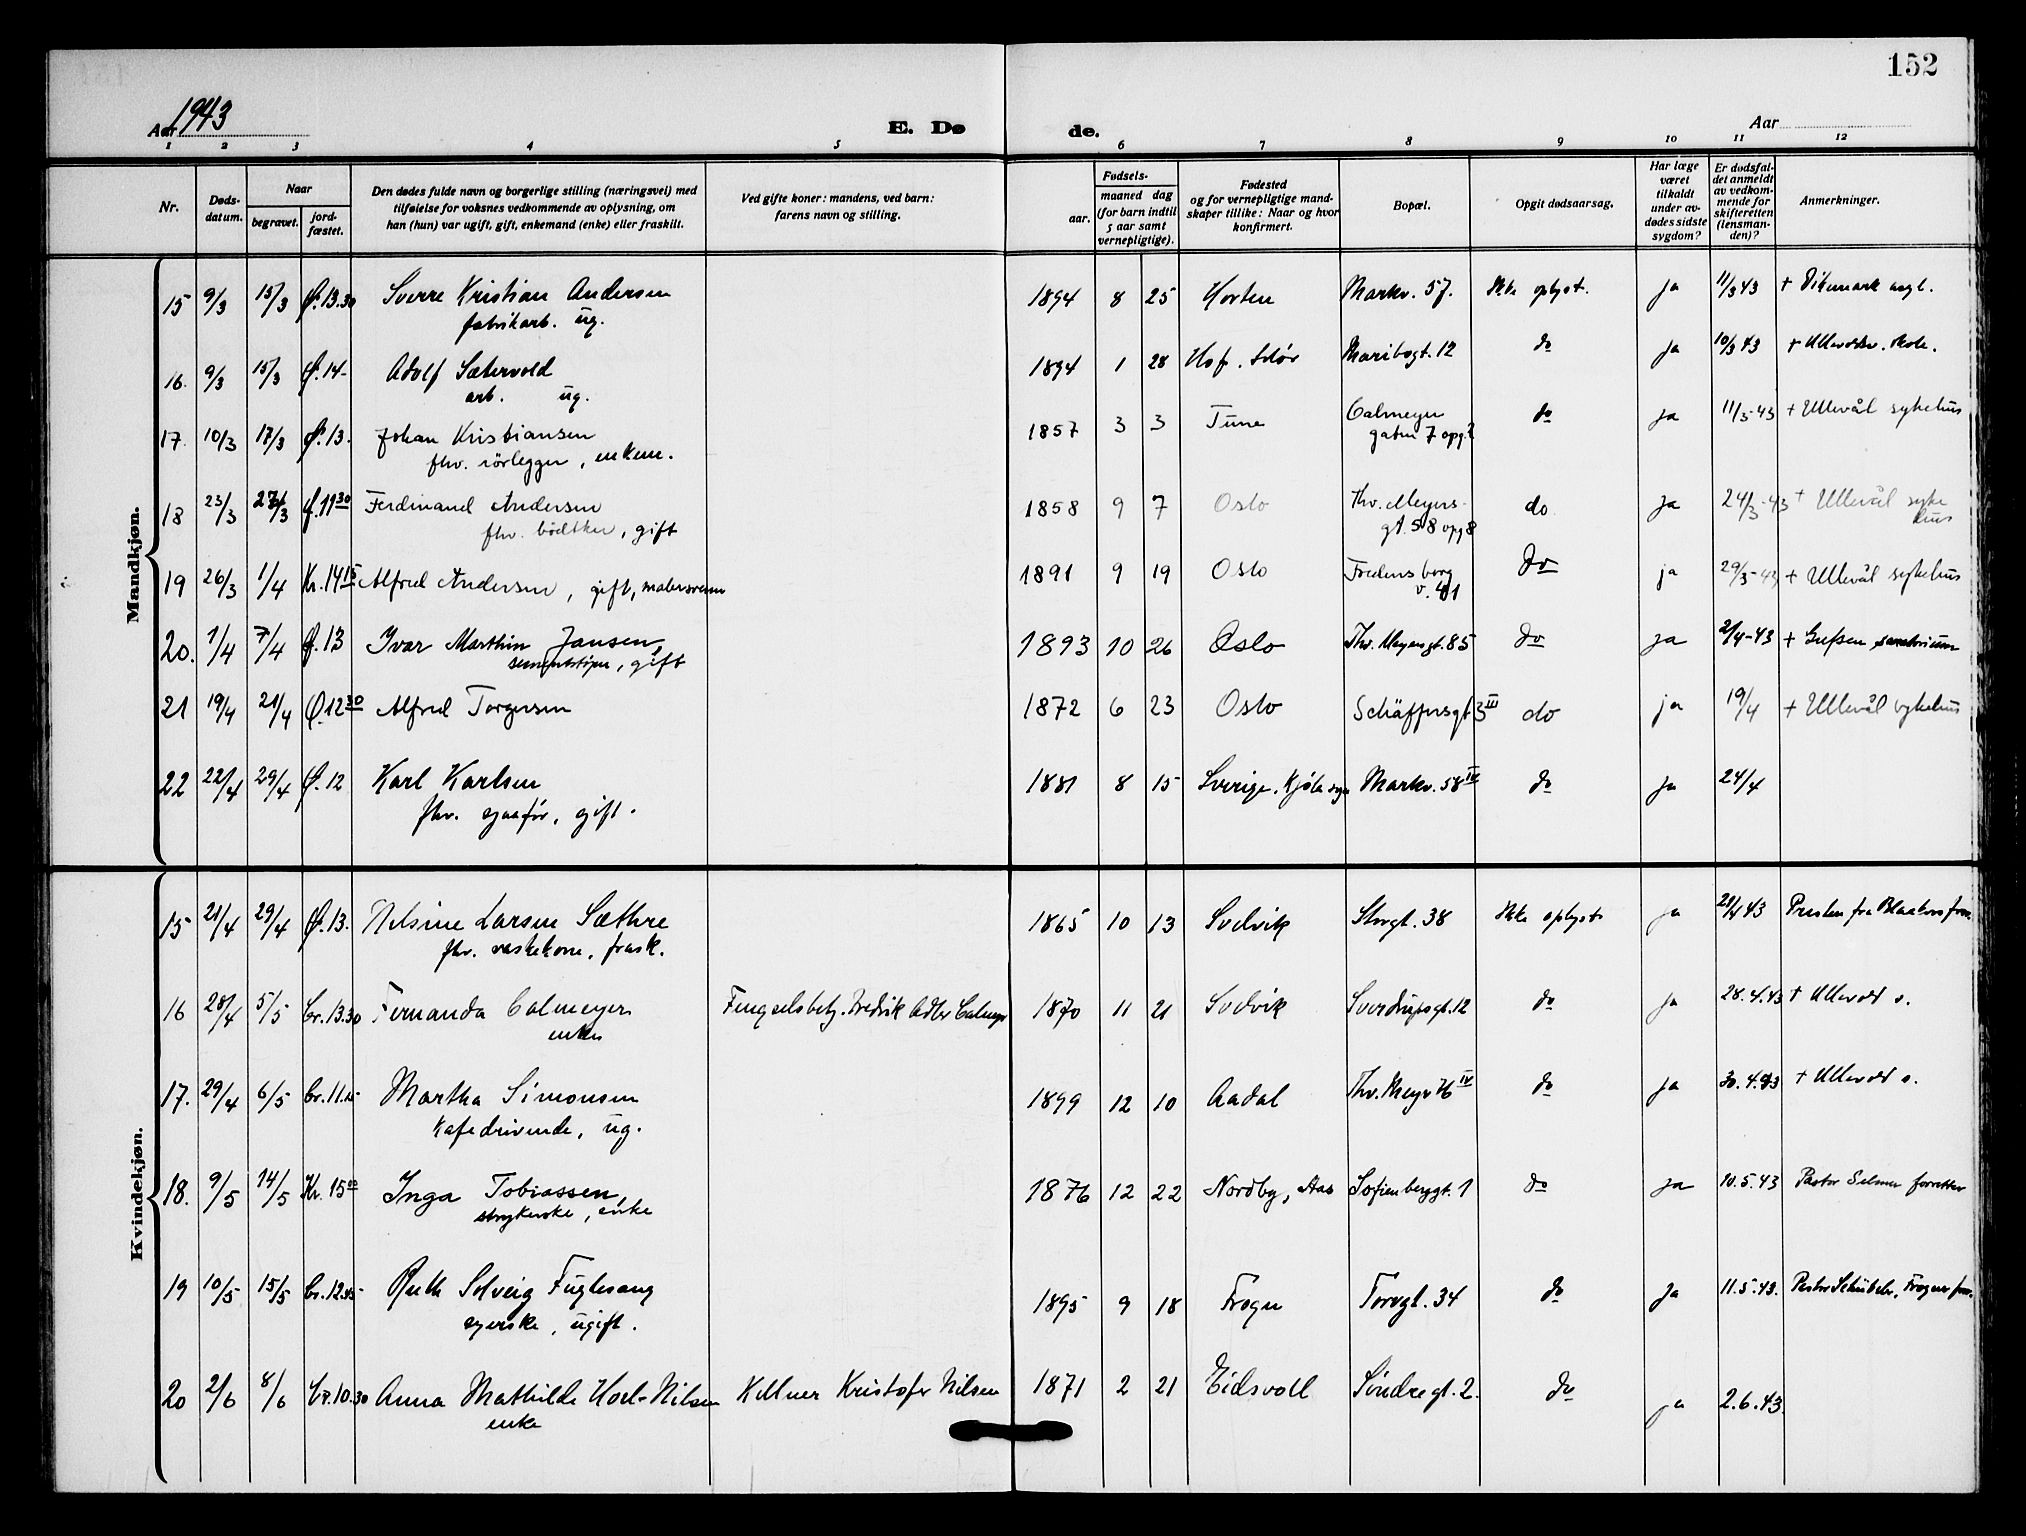 152
Aar 1943
E. Dø
de.
Aar
1 2 3 4 5 6 7 8 9 10 11 12
Nr.
Døds-
datum.
Naar
begravet.
jord-
fæstet.
Den dødes fulde navn og borgerlige stilling (næringsvei) med
tilføielse for voksnes vedkommende av oplysning, om
han (hun) var ugift, gift, enkemand (enke) eller fraskilt.
Ved gifte koner: mandens, ved barn:
farens navn og stilling.
Fødsels-
aar.
maaned dag
(for barn indtil
5 aar samt
vernepligtige).
Fødested
og for vernepligtige mand-
skaper tillike: Naar og hvor
konfirmert.
Bopæl.
Opgit dødsaarsag.
Har læge
været
tilkaldt
under av-
dødes sidste
sygdom?
Er dødsfal-
det anmeldt
av vedkom-
mende for
skifteretten
(lensman-
den)?
Anmerkninger.
Mandkjøn.
15 9/3 15/3 Ø.13.30 Sverre Kristian Andersen 1894 8 25 Horten Markv. 57. Ikke oplyst. ja 11/3 43 + Dikemark asyl.
fabrikarb. ug.
16. 9/3 15/3 Ø.14- Adolf Sætervold 1894 1 28 Hof. Maribogt. 12 do ja 10/3 43
arb. ug.
17. 10/3 17/3 Ø.13. Johan Kristiansen 1857 3 3 Tune Calmeyer do ja 11/3-43 + Ullevål sykehus
gaten 7 opg.2
fhv. rörlegger, enkem.
18 23/3 27/3 Ø.11 30 Ferdinand Andersen 1858 9 7 Oslo Thv. Meyers- do ja 24/3-43 + Ullevål syke
gt. 58 opg 8 hus
fhv. bödtker, gift
19 26/3 1/4 Kr.14 15 Alfred Andersen, gift, malersvenn 1891 9 19 Oslo Fredensborg do ja 29/3-43 + Ullevål sykehus
20. 1/4 7/4 Ø.13 Ivar Marthin Jansen, 1893 10 26 Oslo Thv. Meyersgt. 85 do ja 2/4-43 + Grefsen sanatorium
sementstöper, gift
21 19/4 21/4 Ø12 30 Alfred Torgersen 1872 6 23 Oslo Schäffersgt 3 III do ja 19/4 + Ullevål sykehus
22 22/4 29/4 Ø.12 Karl Karlsen 1881 8 15 Sverige. Markv. 58 IV do ja 24/4
fhv. sjaafør, gift.
Kvindekjøn.
15 21/4 29/4 Ø.13. Nelsine Larsen Sæthre 1865 10 13 Svelvik Storgt. 38 Ikke oplyst ja 43 Presten fra
fhv. vaskekone, frask.
16 28/4 5/5 Cr.13.30 Fernanda Calmeyer Fengselsbetj. Fredrik Adler Calmeyer 1870 11 21 Svelvik Sverdrupsgt. 12 do ja 28.4.43 + Ullevål s.
enke
17. 29/4 6/5 Cr.11.15 Martha Simonsen 1899 12 10 Aadal Thv. Meyer 76 IV do ja 30.4.43 + Ullevål s.
Kafedrivende, ug.
18. 9/5 14/5 Kr.15 00 Inga Tobiassen, 1876 12 22 Nordby, Aas Sofienberggt. 1 do ja 10.5.43 Pastor Selmer forretter
strykerske, enke
19 10/5 15/5 Cr.12.45 Ruth Solveig Fuglesang 1895 9 18 Frogn Torvgt. 34 do ja 11.5.43. Pastor Schübeler, Frogner
syerske, ugift.
20 2/6 8/6 Cr.10.30 Anna Mathilde Karl-Nilsen Kelner Kristofer Nilsen 1871 2 21 Eidsvoll Söndregt. 2. do ja 2.6.43.
enke